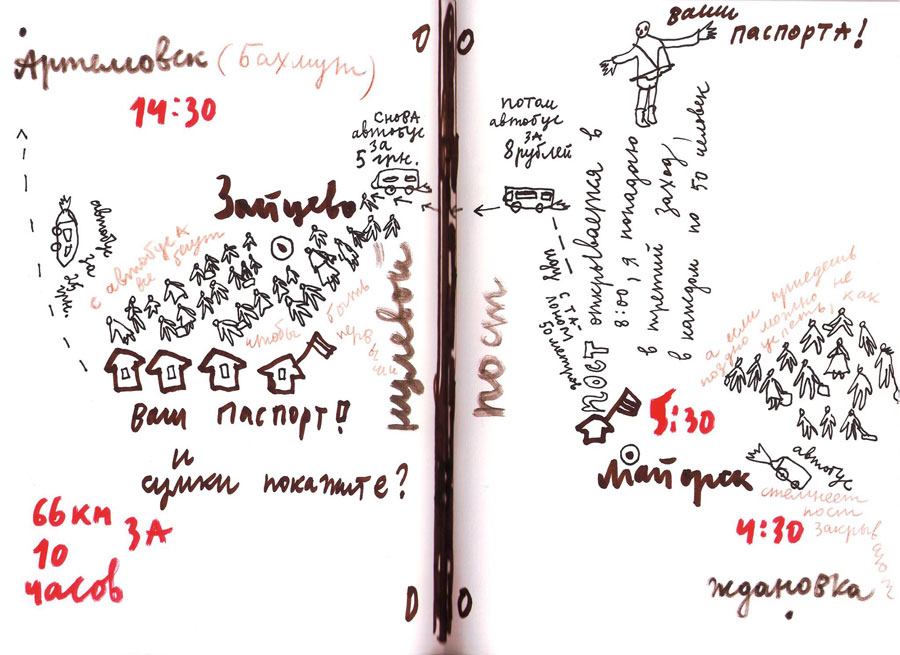 Артемовск (Бахмут)
14:30
автобус за
снова
автобус
за
5 грн.
Зайцево
с автобуса
все бегут
чтобы быть
перв
ы
ми
Ваш паспорт!
и
сумки покажите?
66 км
за
10
часов
0 0
нулевой
пост
0 0
ваши
паспорта!
потом
автобус
за
8 рублей
50 метров
пост открывается в
8:00, я попадаю
в третий заход,
в каждом по 50 человек
а если приедешь
поздно можно не
успеть, как
5:30
Майорск
автобус
стемнеет
пост
закрыв
4:30
Ждановка